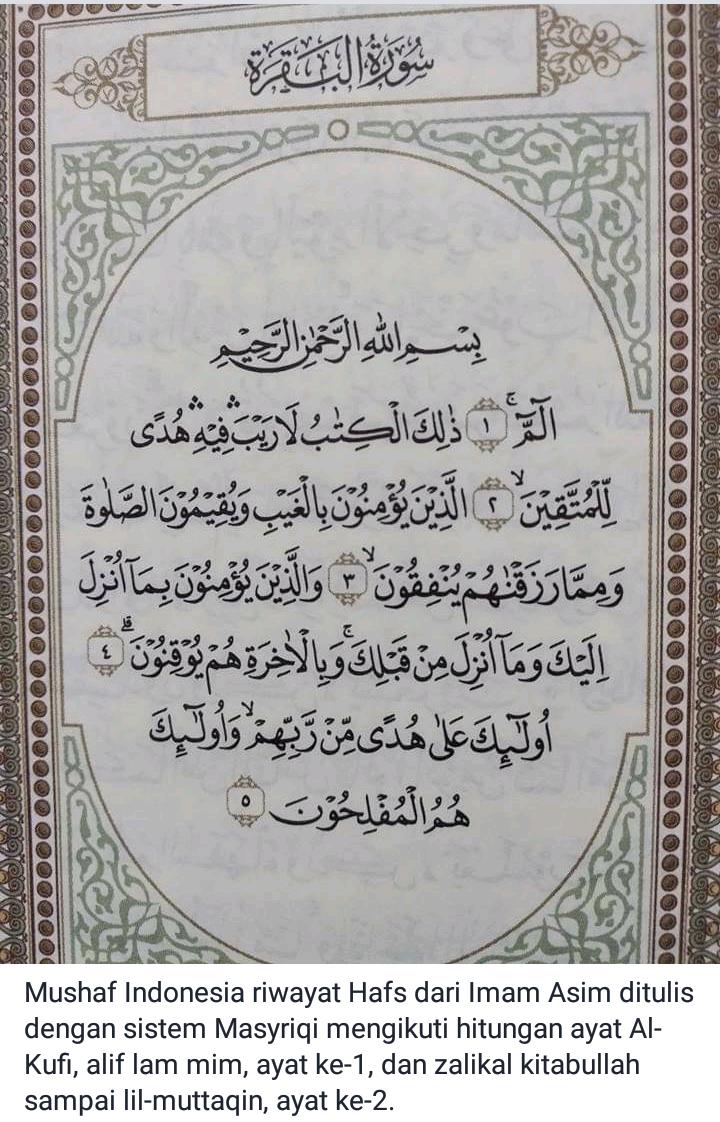 سُوْرَةُ الْبَقَرَةِ
بِسْمِ اللّٰهِ الرَّحْمٰنِ الرَّحِيْمِ
الۤمّۤ ۚ ١ ذٰلِكَ الْكِتٰبُ لَا رَيْبَ ۛ فِيْهِ ۛ هُدًى
لِّلْمُتَّقِيْنَ ۙ ٢ الَّذِيْنَ يُؤْمِنُوْنَ بِالْغَيْبِ وَيُقِيْمُوْنَ الصَّلٰوةَ
وَمِمَّا رَزَقْنٰهُمْ يُنْفِقُوْنَ ۙ ٣ وَالَّذِيْنَ يُؤْمِنُوْنَ بِمَآ اُنْزِلَ
اِلَيْكَ وَمَآ اُنْزِلَ مِنْ قَبْلِكَ ۚ وَبِالْاٰخِرَةِ هُمْ يُوْقِنُوْنَ ۗ ٤
اُولٰۤىِٕكَ عَلٰى هُدًى مِّنْ رَّبِّهِمْ ۙ وَاُولٰۤىِٕكَ
هُمُ الْمُفْلِحُوْنَ ٥
Mushaf Indonesia riwayat Hafs dari Imam Asim ditulis
dengan sistem Masyriqi mengikuti hitungan ayat Al-
Kufi, alif lam mim, ayat ke-1, dan zalikal kitabullah
sampai lil-muttaqin, ayat ke-2.